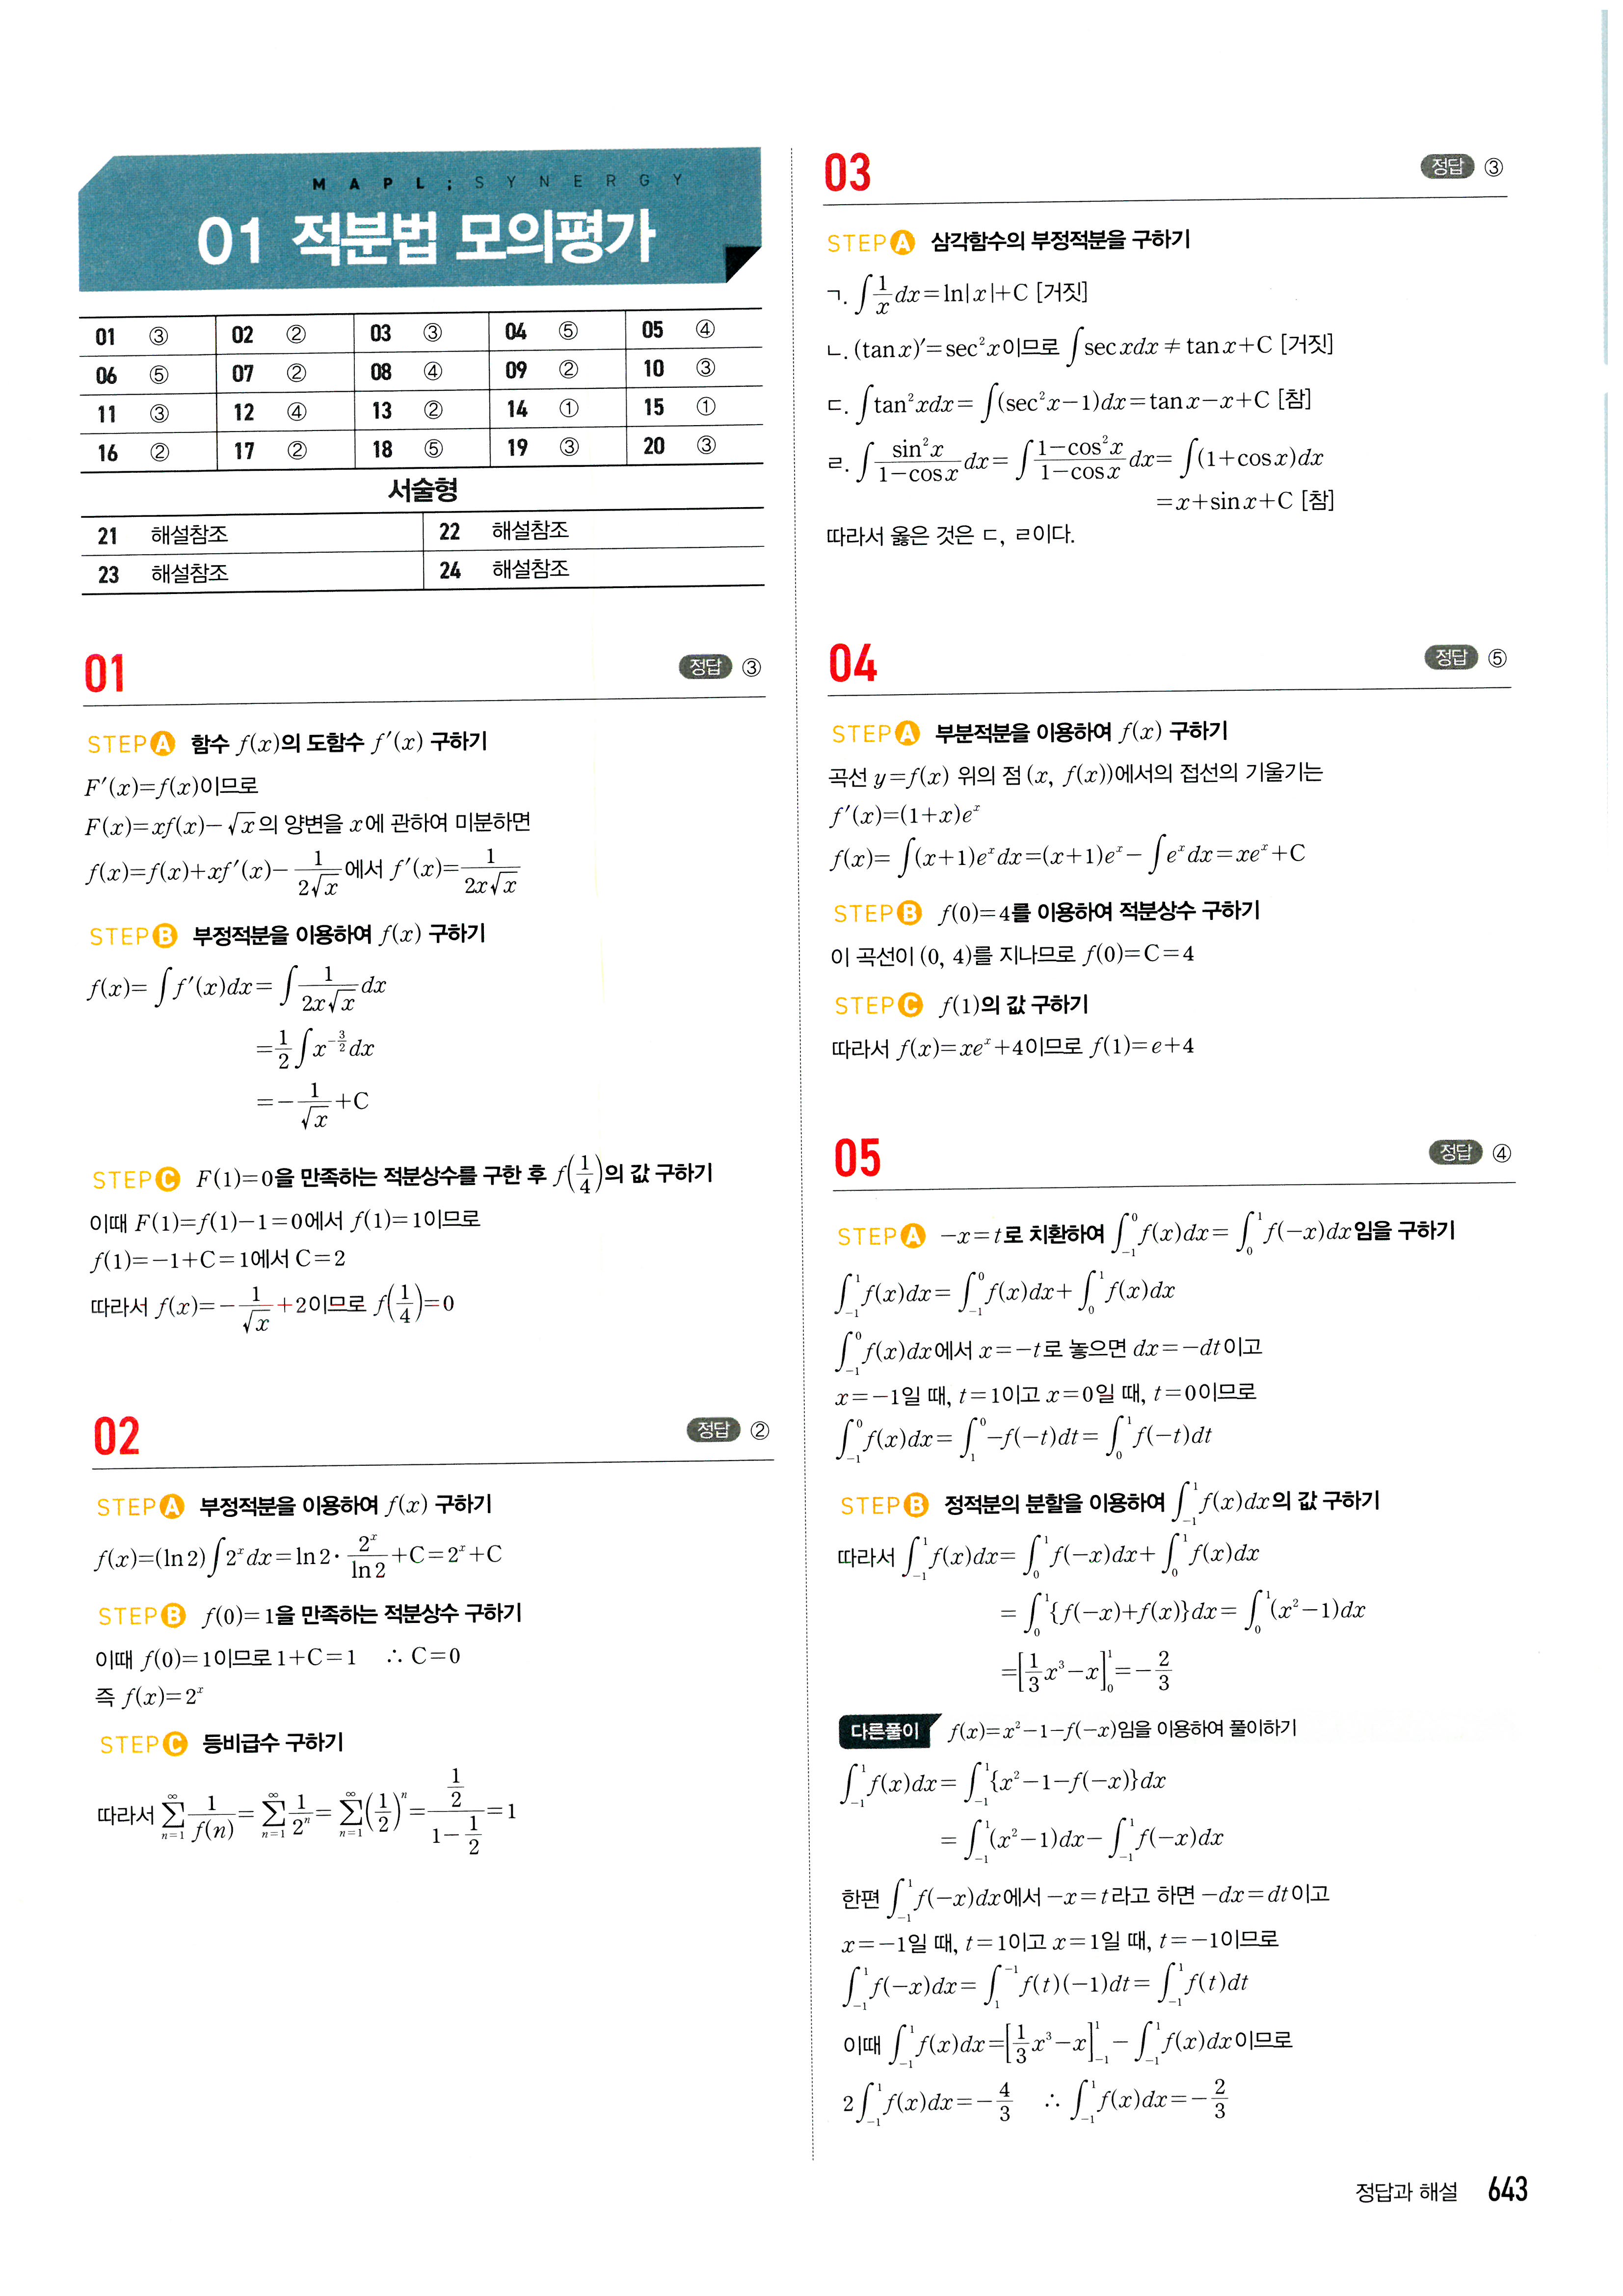 MAPL;SYNERGY
01 적분법 모의평가
01 ③ 02 ② 03 ③ 04 ⑤ 05 ④
06 ⑤ 07 ② 08 ④ 09 ② 10 ③
11 ③ 12 ④ 13 ② 14 ① 15 ①
16 ② 17 ② 18 ⑤ 19 ③ 20 ③
서술형
21 해설참조 22 해설참조
23 해설참조 24 해설참조
01 정답 ③
STEP A 함수 f(x)의 도함수 f′(x) 구하기
F′(x)=f(x)이므로
F(x)=xf(x)−√x의 양변을 x에 관하여 미분하면
f(x)=f(x)+xf′(x)−1/(2√x)에서 f′(x)=1/(2x√x)
STEP B 부정적분을 이용하여 f(x) 구하기
f(x)=∫f′(x)dx=∫1/(2x√x)dx
=1/2∫x^(−3/2)dx
=−1/√x+C
STEP C F(1)=0을 만족하는 적분상수를 구한 후 f(1/4)의 값 구하기
이때 F(1)=f(1)−1=0에서 f(1)=1이므로
f(1)=−1+C=1에서 C=2
따라서 f(x)=−1/√x+2이므로 f(1/4)=0
02 정답 ②
STEP A 부정적분을 이용하여 f(x) 구하기
f(x)=(ln2)∫2^x dx=ln2·2^x/ln2+C=2^x+C
STEP B f(0)=1을 만족하는 적분상수 구하기
이때 f(0)=1이므로 1+C=1 ∴ C=0
즉 f(x)=2^x
STEP C 등비급수 구하기
따라서 ∑_{n=1}^{∞} 1/f(n)=∑_{n=1}^{∞} 1/2^n=∑_{n=1}^{∞}(1/2)^n=(1/2)/(1−1/2)=1
03 정답 ③
STEP A 삼각함수의 부정적분을 구하기
ㄱ. ∫1/x dx=ln|x|+C [거짓]
ㄴ. (tanx)′=sec²x이므로 ∫secxdx≠tanx+C [거짓]
ㄷ. ∫tan²xdx=∫(sec²x−1)dx=tanx−x+C [참]
ㄹ. ∫sin²x/(1−cosx)dx=∫(1−cos²x)/(1−cosx)dx=∫(1+cosx)dx
=x+sinx+C [참]
따라서 옳은 것은 ㄷ, ㄹ이다.
04 정답 ⑤
STEP A 부분적분을 이용하여 f(x) 구하기
곡선 y=f(x) 위의 점 (x, f(x))에서의 접선의 기울기는
f′(x)=(1+x)e^x
f(x)=∫(x+1)e^x dx=(x+1)e^x−∫e^x dx=xe^x+C
STEP B f(0)=4를 이용하여 적분상수 구하기
이 곡선이 (0, 4)를 지나므로 f(0)=C=4
STEP C f(1)의 값 구하기
따라서 f(x)=xe^x+4이므로 f(1)=e+4
05 정답 ④
STEP A −x=t로 치환하여 ∫_{−1}^{0}f(x)dx=∫_{0}^{1}f(−x)dx임을 구하기
∫_{−1}^{1}f(x)dx=∫_{−1}^{0}f(x)dx+∫_{0}^{1}f(x)dx
∫_{−1}^{0}f(x)dx에서 x=−t로 놓으면 dx=−dt이고
x=−1일 때, t=1이고 x=0일 때, t=0이므로
∫_{−1}^{0}f(x)dx=∫_{1}^{0}−f(−t)dt=∫_{0}^{1}f(−t)dt
STEP B 정적분의 분할을 이용하여 ∫_{−1}^{1}f(x)dx의 값 구하기
따라서 ∫_{−1}^{1}f(x)dx=∫_{0}^{1}f(−x)dx+∫_{0}^{1}f(x)dx
=∫_{0}^{1}{f(−x)+f(x)}dx=∫_{0}^{1}(x²−1)dx
=[1/3x³−x]_{0}^{1}=−2/3
다른풀이 f(x)=x²−1−f(−x)임을 이용하여 풀이하기
∫_{−1}^{1}f(x)dx=∫_{−1}^{1}{x²−1−f(−x)}dx
=∫_{−1}^{1}(x²−1)dx−∫_{−1}^{1}f(−x)dx
한편 ∫_{−1}^{1}f(−x)dx에서 −x=t라고 하면 −dx=dt이고
x=−1일 때, t=1이고 x=1일 때, t=−1이므로
∫_{−1}^{1}f(−x)dx=∫_{1}^{−1}f(t)(−1)dt=∫_{−1}^{1}f(t)dt
이때 ∫_{−1}^{1}f(x)dx=[1/3x³−x]_{−1}^{1}−∫_{−1}^{1}f(x)dx이므로
2∫_{−1}^{1}f(x)dx=−4/3 ∴ ∫_{−1}^{1}f(x)dx=−2/3
정답과 해설 643